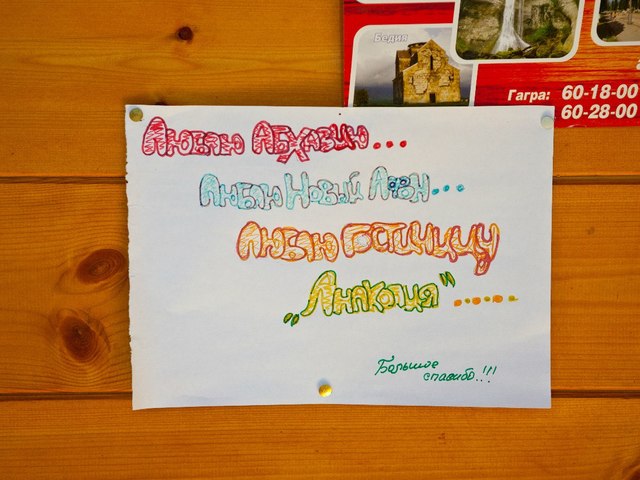 Бедия
Гагра: 60-18-00
60-28-00
Люблю Абхазию...
Люблю Новый Афон...
Люблю гостиницу
„Анакопия"......
Большое
спасибо..!!!